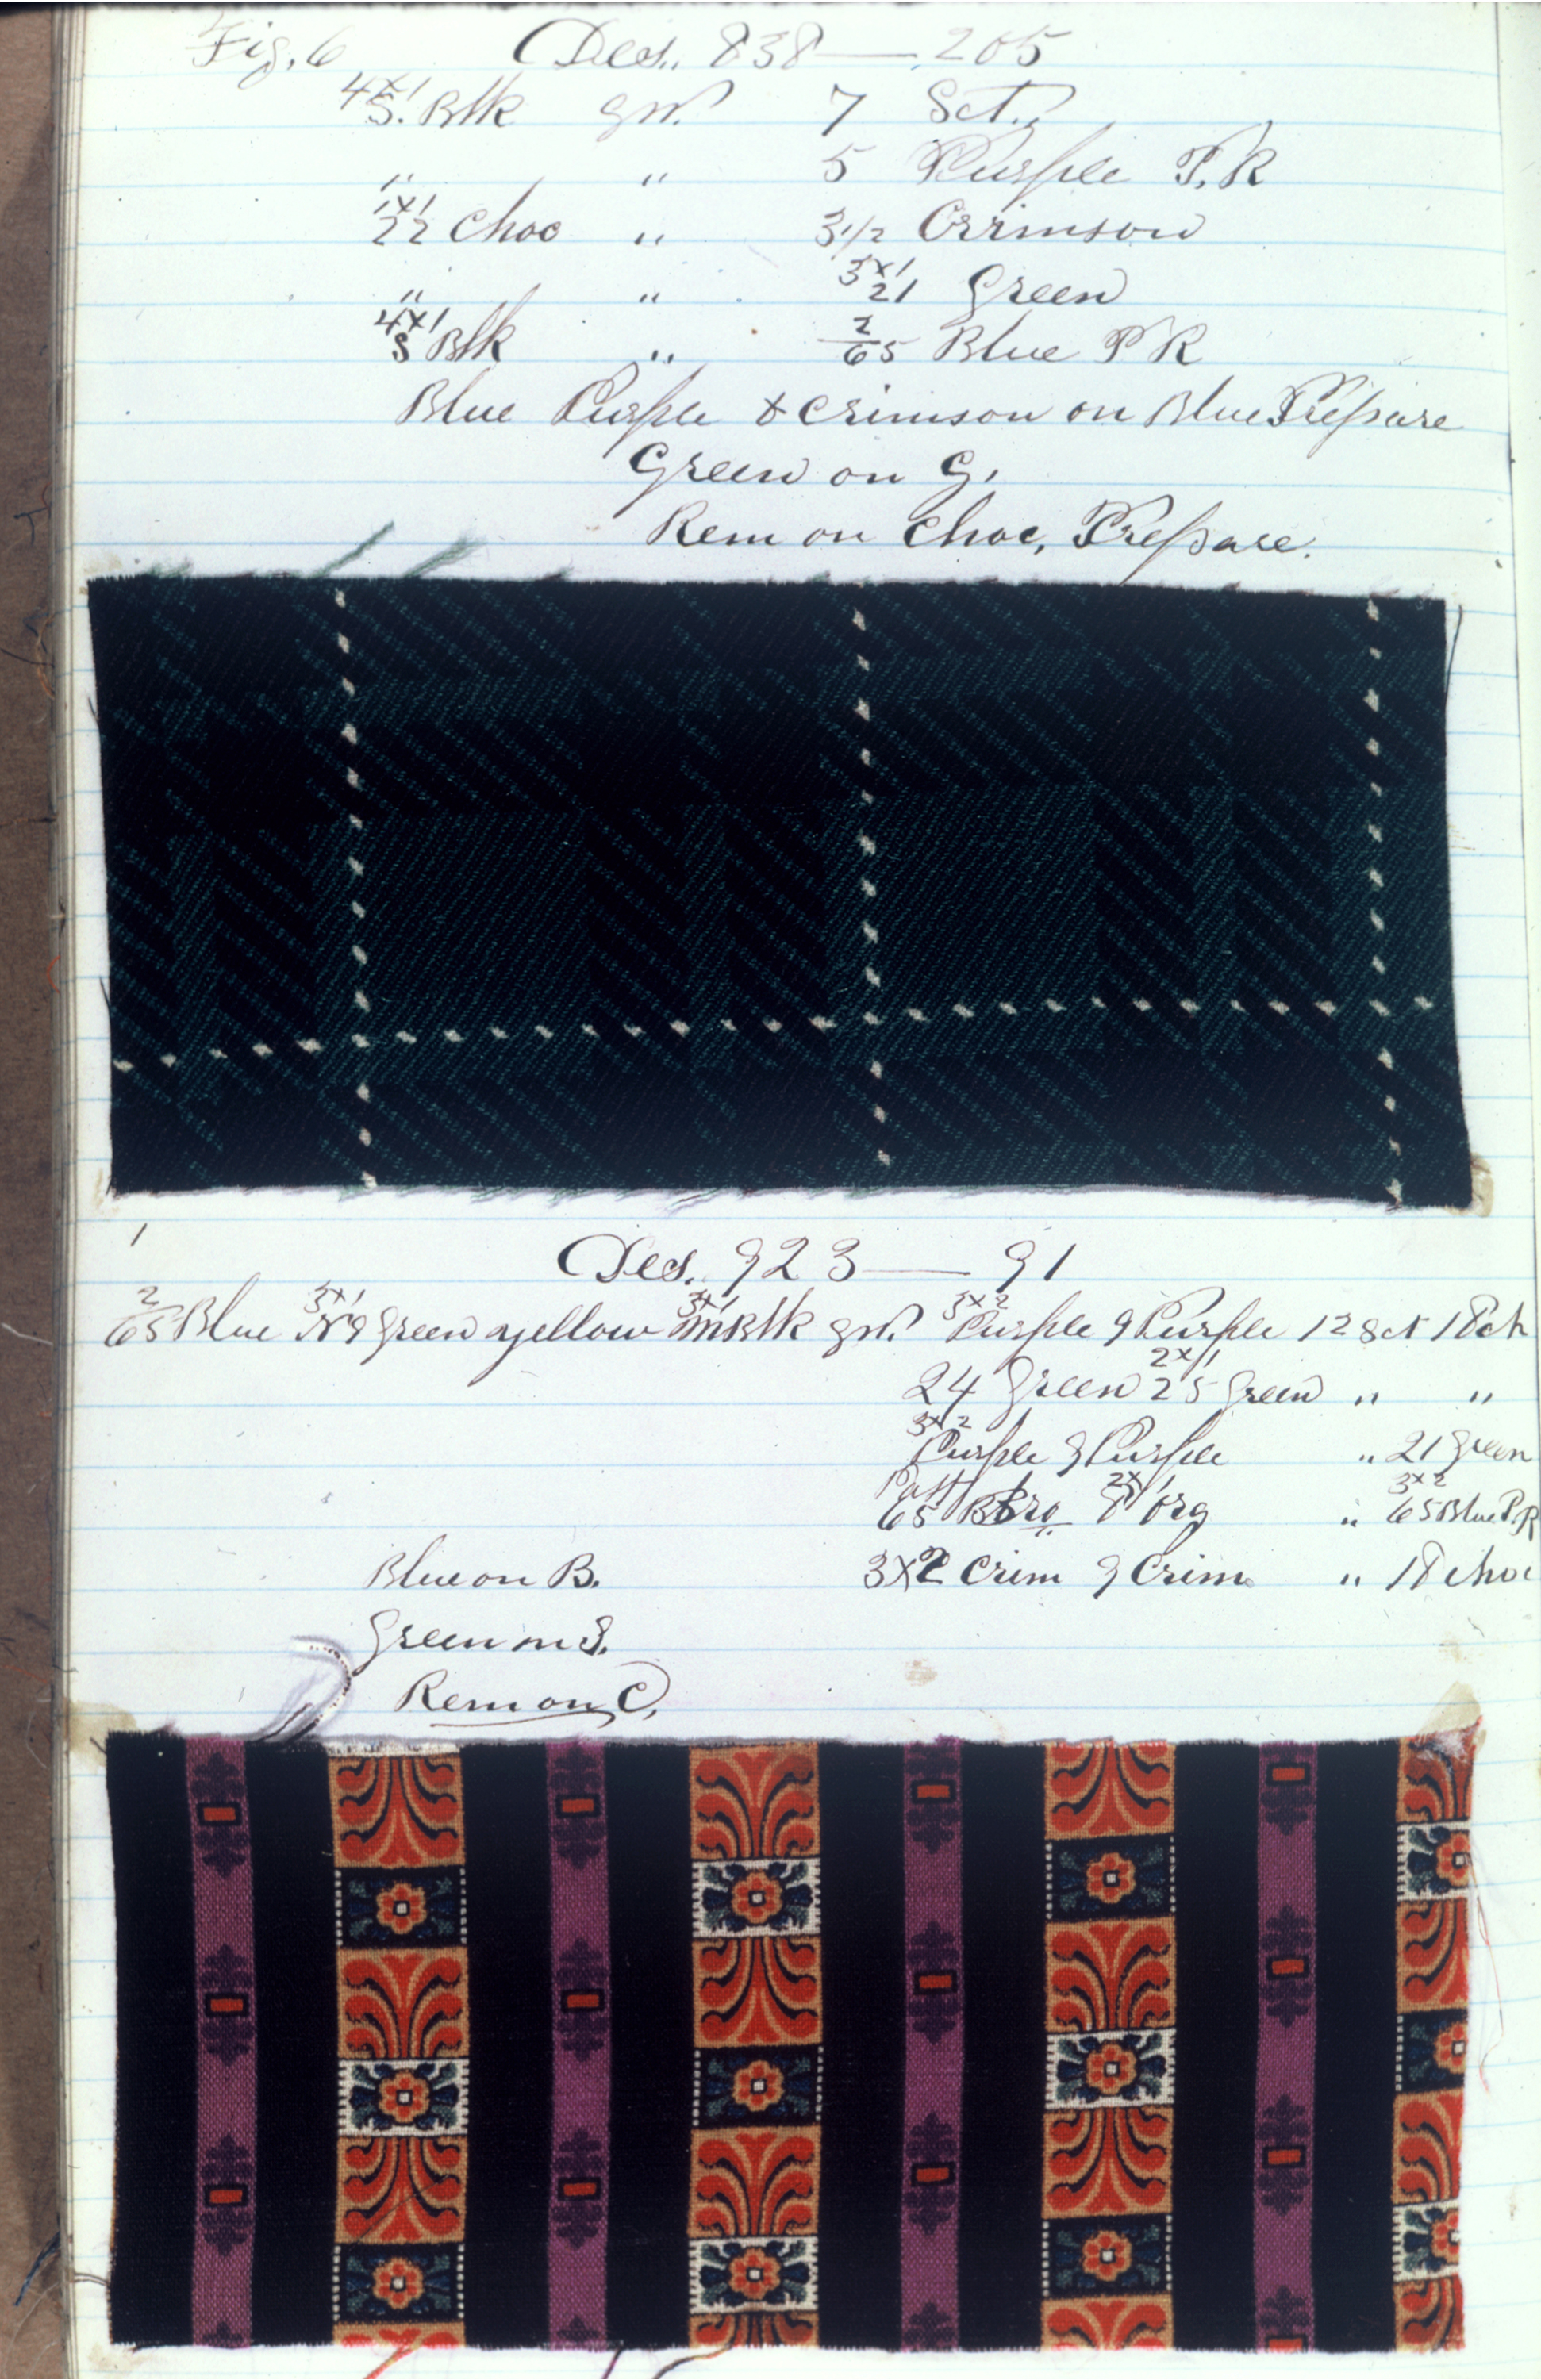 Fig. 6 Des. 838 — 205
4x1 S. Blk grd. 7 Sct.
" " 5 Purple P. R
1x1 22 Choc " 3 1/2 Crrimson
" " 3x1 21 Green
4x1 S Blk " 2/65 Blue P R
Blue Purple & Crimson on Blue Prepare
Green on G.
Rem on Choc. Prepare.
1
Des. 923 — 91
2/65 Blue 3x1 No 9 Green yellow 3x1 m Blk grd. 3x2 Purple 9 Purple 12 Sct 18 ch
24 Green 2x1 25 Green " "
3x2 Purple 9 Purple " 21 Green
65 Bro 2x1 8 Org " 3x2 65 Blue P. R
Blue on B. 3x2 Crim 9 Crim. " 18 Choc
Green on G.
Rem on C.